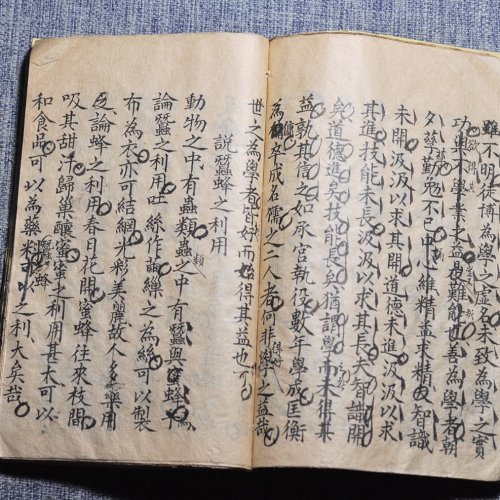 雖不明徒博為學之虛名未致為學之實
夕孳孳勤勉不已中心維精益求精友智識
未開汲汲以求其開道德未進汲汲以求
其進技能未長汲汲以求其長夫智識開
矣道德進矣技能長矣猶謂學而未得其
益孰其信之如承宮執役數年學成匡衡
為傭卒成名儒之二人者何非學之益哉
世之為學者皆好而始得其益也
說蠶蜂之利用
動物之中有蟲類蟲之中有蠶與蜜蜂
論蠶之利用吐絲作繭繰之為絲可以製
布為衣亦可結網光彩美麗故人多樂用
論蜂之利用春日花開蜜蜂往來枝間
吸其甜汁歸巢釀蜜蜜之利用甚大可以
和食品可以為藥料蠶蜂之利大矣哉